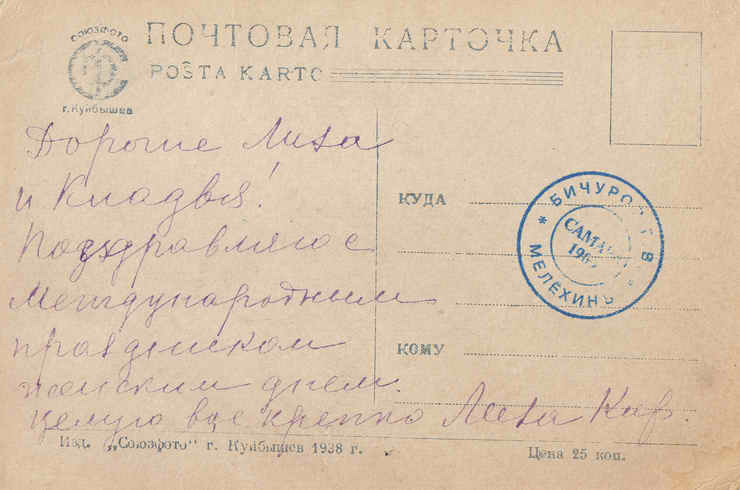 СОЮЗФОТО
г. Куйбышев
ПОЧТОВАЯ КАРТОЧКА
POŜTA KARTO
Дорогие Лиза
и Клавдия!
Поздравляю с
Международным
праздником
женским днем.
Целую вас крепко Лиза Кир.
КУДА
КОМУ
БИЧУРО В
МЕЛЕХИН
САМА
19
Изд. „Союзфото" г. Куйбышев 1938 г.
Цена 25 коп.